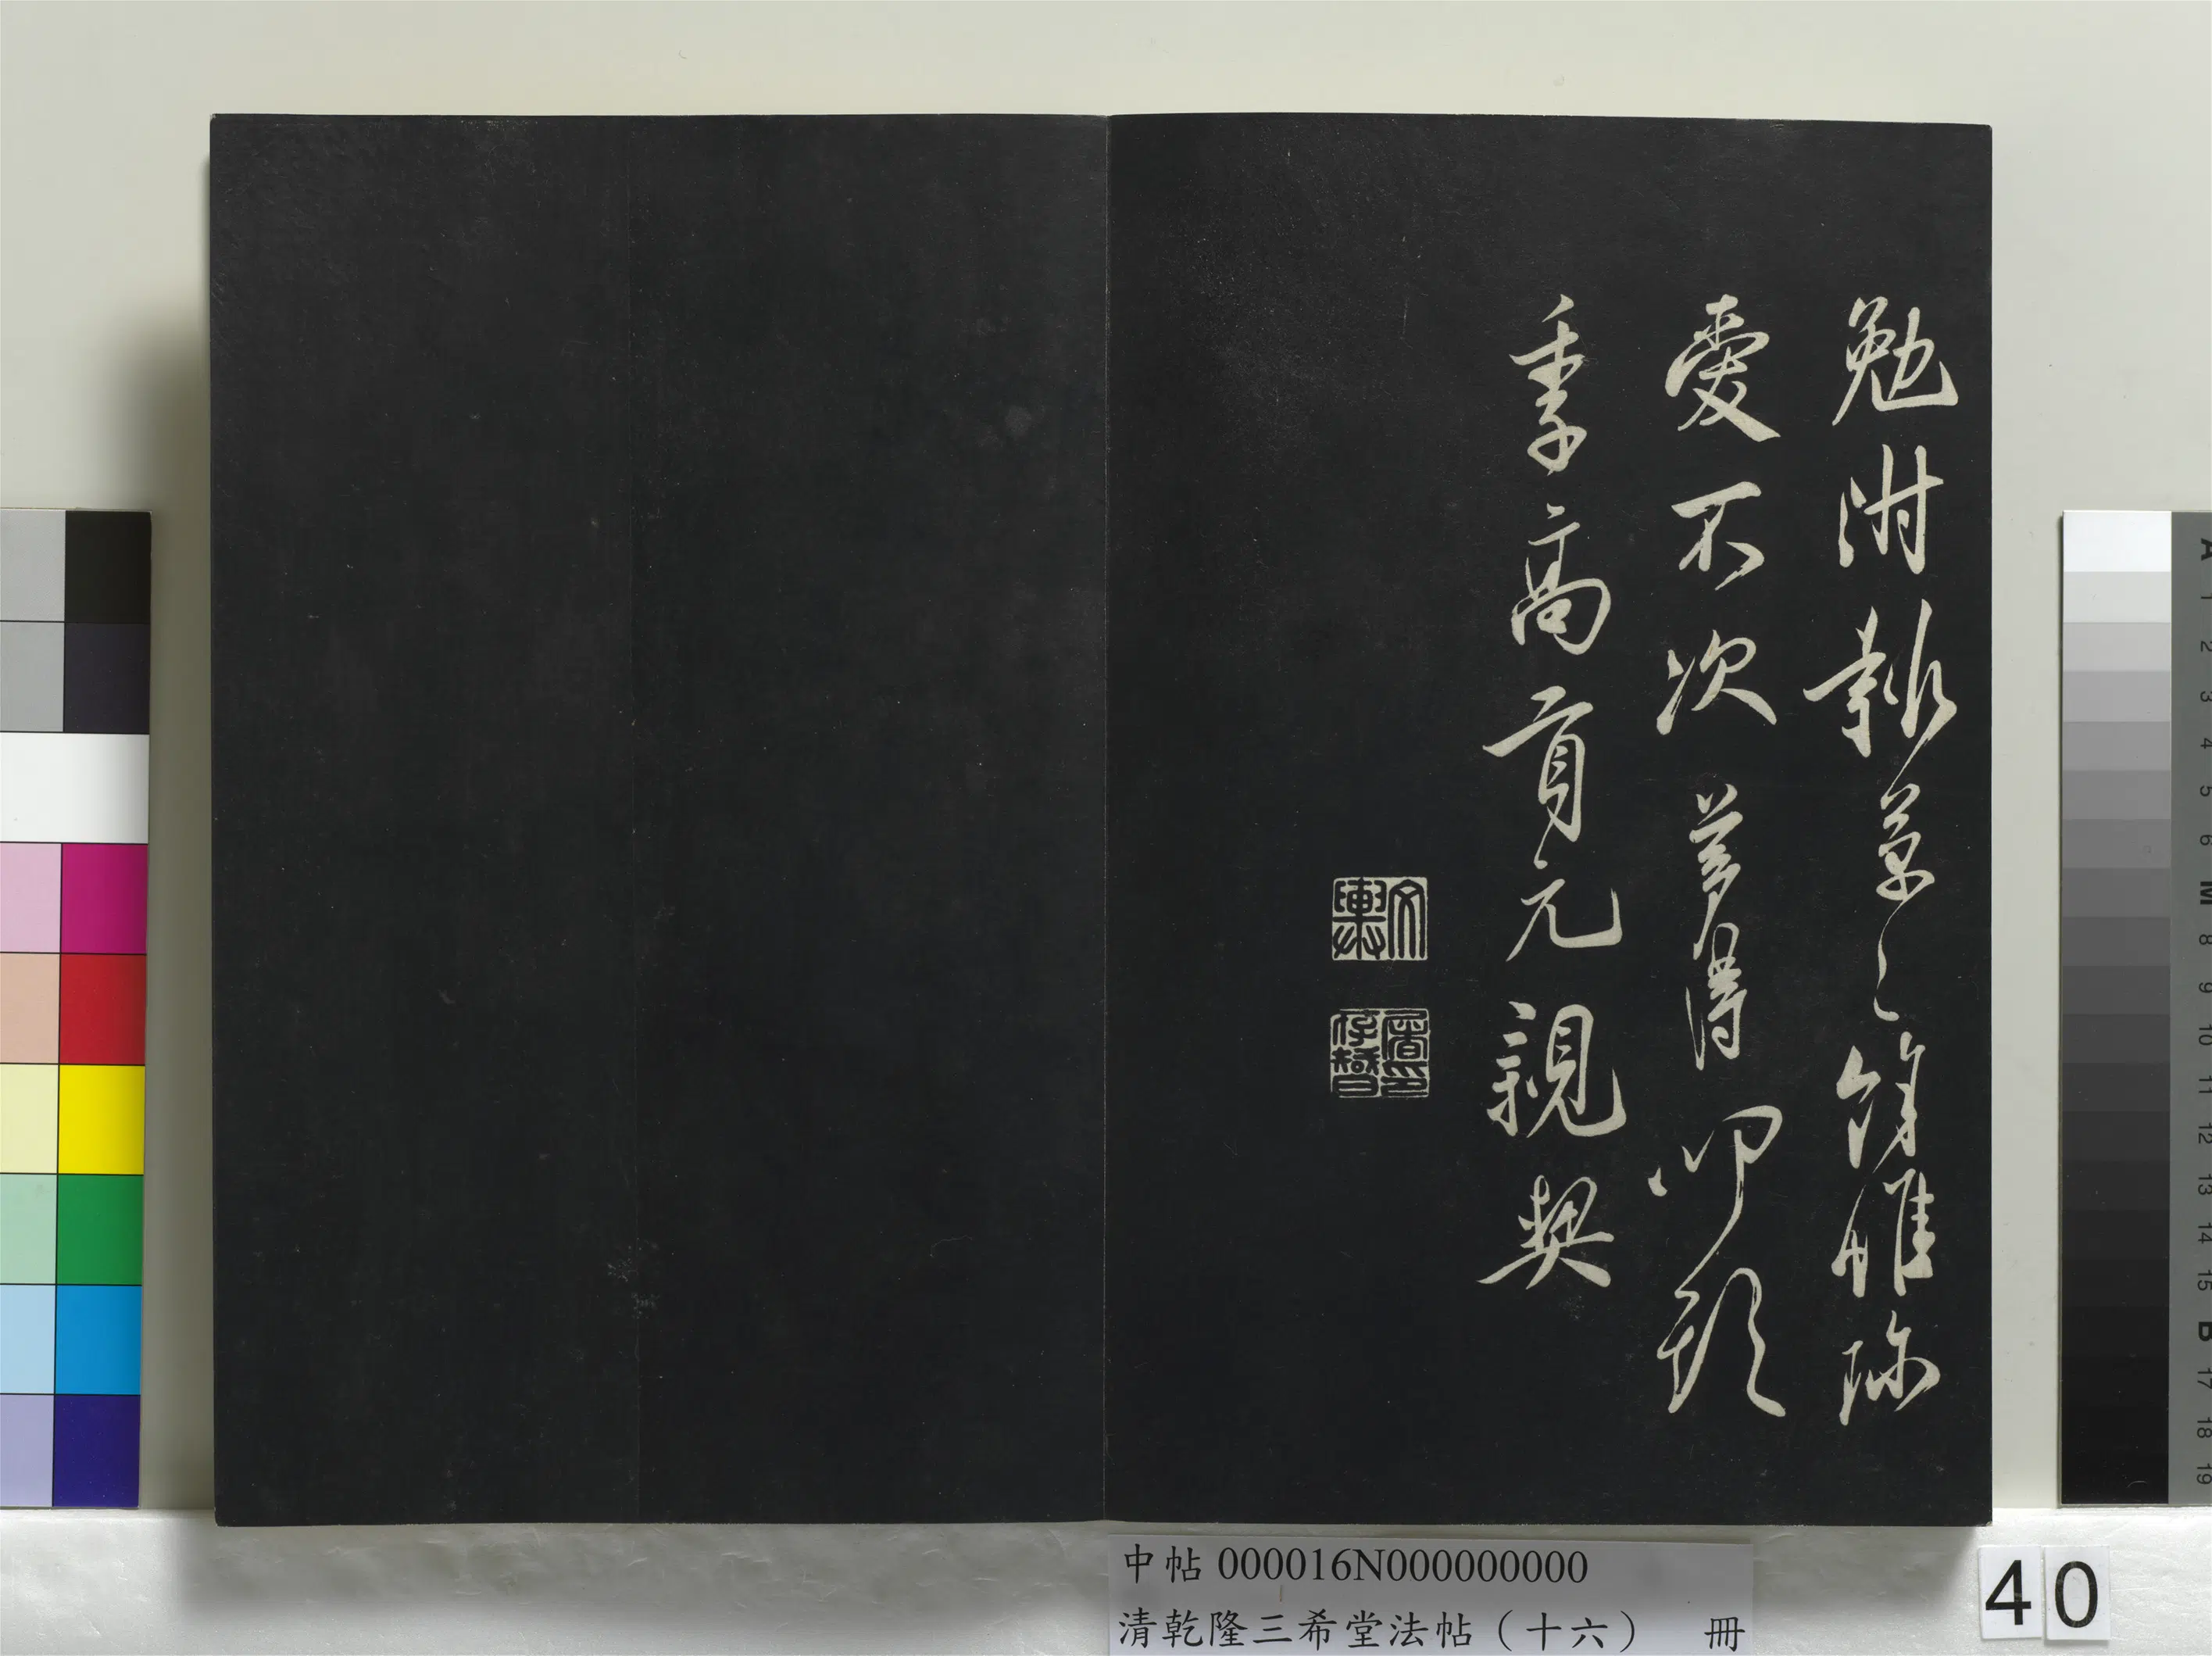 勉附報草〻餘惟珍
愛不次夢得叩頭
季高貢元親契
中帖 000016N000000000
清乾隆三希堂法帖（十六） 冊
40
A 1 2 3 4 5 6 M 8 9 10 11 12 13 14 15 B 17 18 19